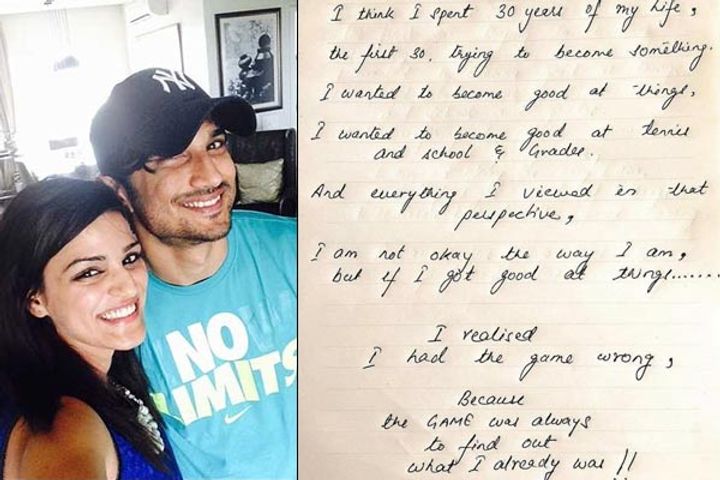 NY
NO
LIMITS
I think I spent 30 years of my life,
the first 30, trying to become something.
I wanted to become good at things,
I wanted to become good at tennis
and school & Grades.
And everything I viewed in that
perspective,
I am not okay the way I am,
but if I got good at things.......
I realised
I had the game wrong,
Because
the GAME was always
to find out
what I already was !!